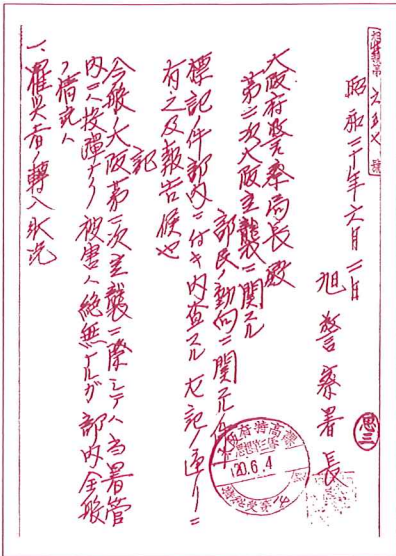 旭特報第六五七號
昭和二十年六月二日
旭警察署長
思三
大阪府警察局長殿
第二次大阪空襲ニ関スル
部民動向ニ関スル件
標記ノ件部内ニ付キ内査スルニ左記ノ通リニ
有之及報告候也
記
今般ノ大阪第二次空襲ニ際シテハ当署管
内ニハ投弾ナク被害ハ絶無ナルガ部内全般
ノ情況ハ
一、罹災者ノ轉入状況
20.6.4